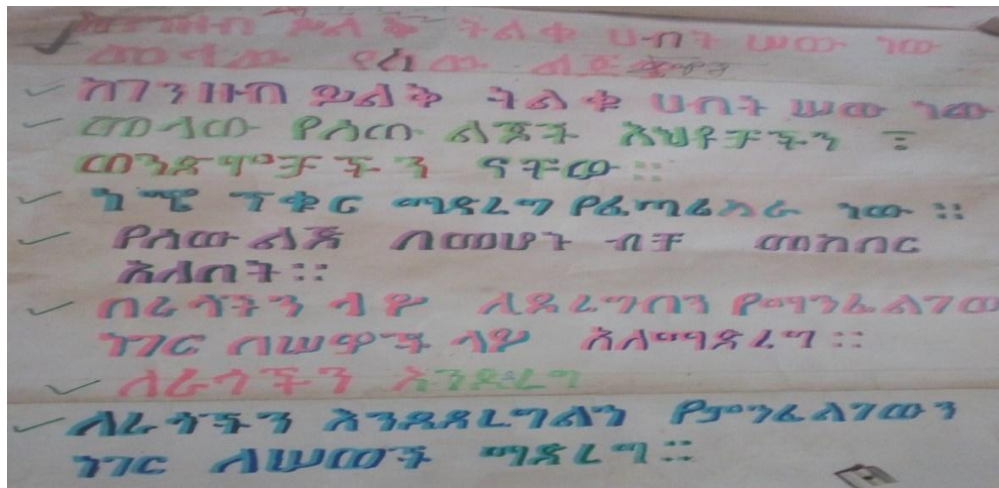 ከገንዘብ ይልቅ ትልቁ ሀብት ሠው ነው
መላው የሰው ልጅ
ከገንዘብ ይልቅ ትልቁ ሀብት ሠው ነው
መላው የሰው ልጆች እህቶቻችን ፣
ወንድሞቻችን ናቸው ።
ነጭ ጥቁር ማድረግ የፈጣሪ ስራ ነው ።
የሰው ልጅ በመሆኑ ብቻ መከበር
አለበት ።
በራሳችን ላይ ሊደረግብን የማንፈልገው
ነገር በሠዎች ላይ አለማድረግ ።
ለራሳችን እንደ
ለራሳችን እንዲደረግልን የምንፈልገውን
ነገር ለሠወች ማድረግ ።